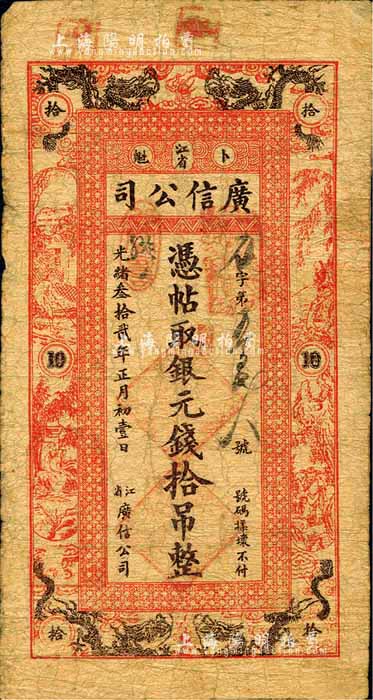 上海陽明拍賣
拾 拾
卜 江省 魁
廣信公司
字第 八 號
號碼揉壞不付
憑帖取銀元錢拾吊整
光緒叁拾貳年正月初壹日
江省廣信公司
10 10
上海陽明拍賣
拾 拾
上海陽明拍賣